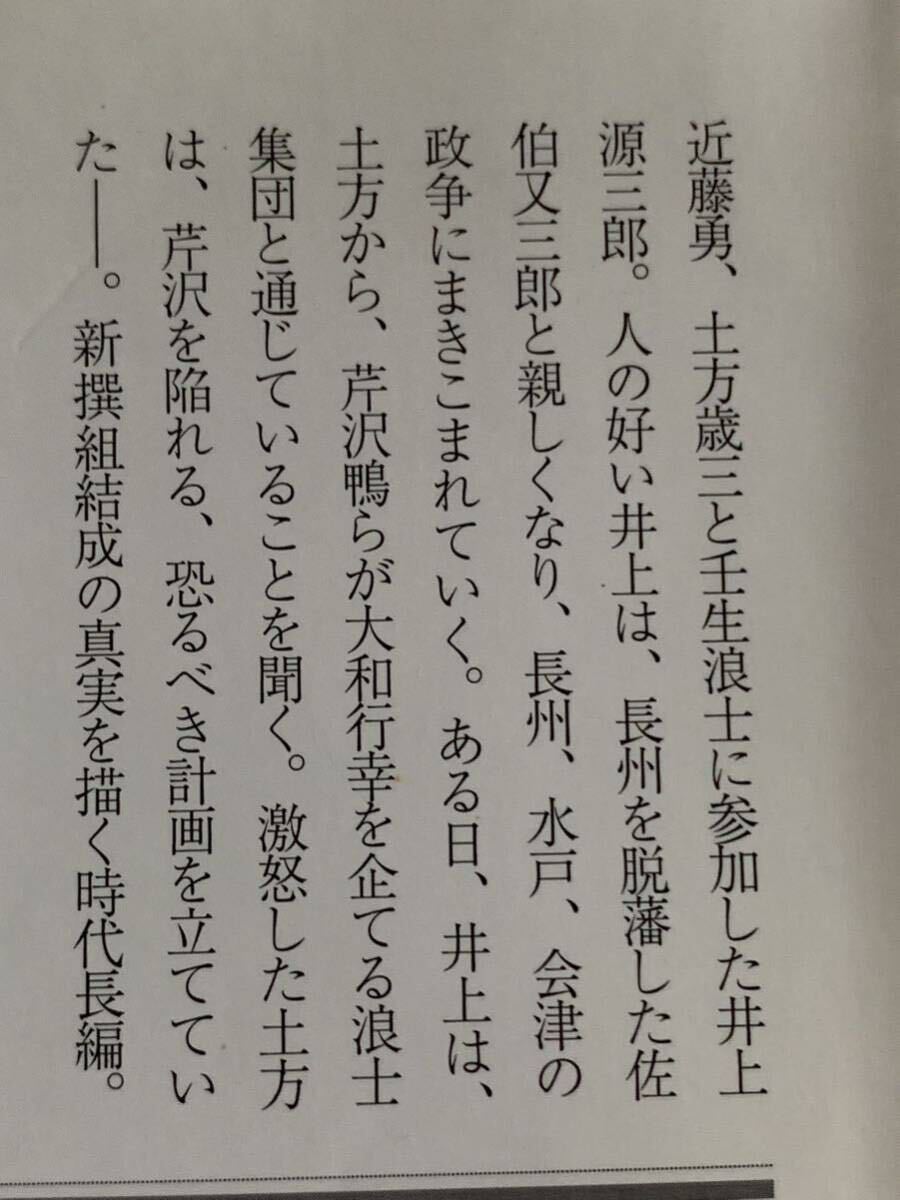 近藤勇、土方歳三と壬生浪士に参加した井上
源三郎。人の好い井上は、長州を脱藩した佐
伯又三郎と親しくなり、長州、水戸、会津の
政争にまきこまれていく。ある日、井上は、
土方から、芹沢鴨らが大和行幸を企てる浪士
集団と通じていることを聞く。激怒した土方
は、芹沢を陥れる、恐るべき計画を立ててい
た――。新撰組結成の真実を描く時代長編。